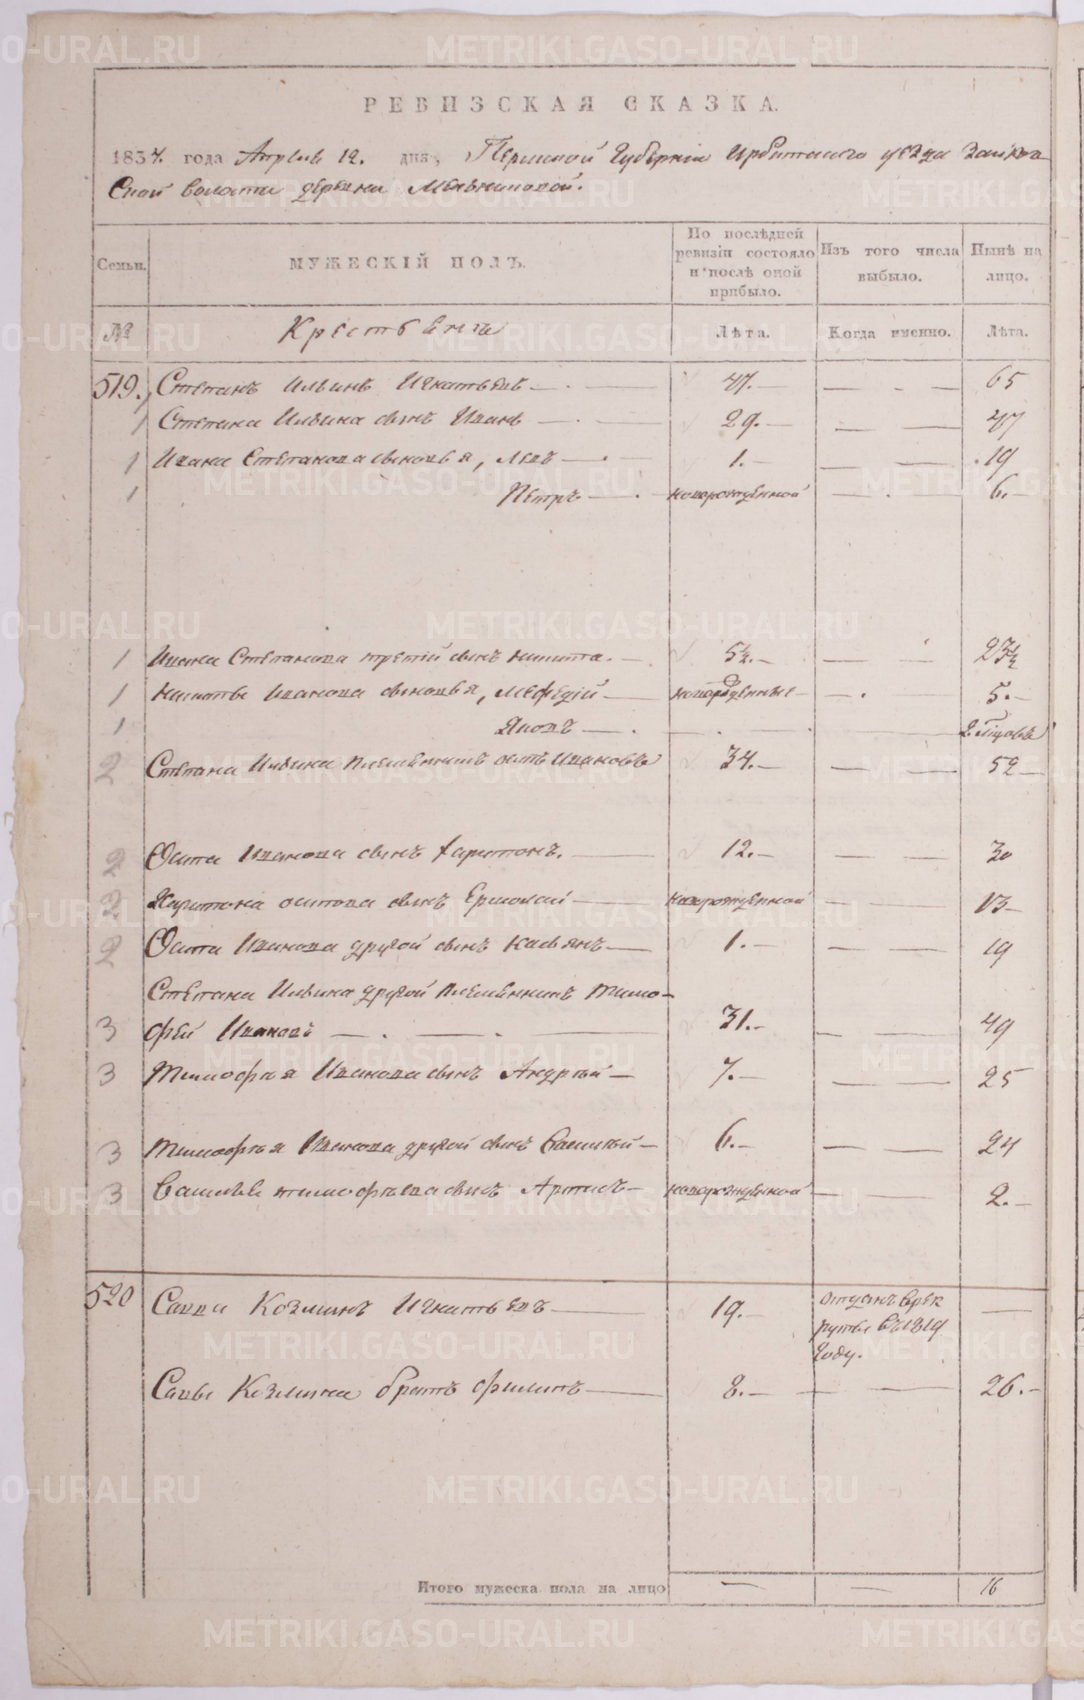 РЕВИЗСКАЯ СКАЗКА.
1834 года Апреля 12. дня, Пермской Губернии Ирбитского уезда Зайков-
ской волости деревни Мельниковой.
Семьи.
МУЖЕСКІЙ ПОЛЪ.
По послѣдней ревизіи состояло и послѣ оной прибыло.
Изъ того числа выбыло.
Нынѣ на лицо.
№
Крестьяне
Лѣта.
Когда именно.
Лѣта.
519. Степанъ Ильинъ Игнатьевъ — 47. — 65
1 Степана Ильина сынъ Иванъ — 29. — 47
1 Ивана Степанова сыновья, Левъ — 1. — 19
1 Петръ — новорожденной — 6.
1 Ивана Степанова третий сынъ Никита. — 5½. — 23½
1 Никиты Иванова сыновья, Мефедій — новорожденные — 5.
1 Яковъ — 2 Мѣсяцовъ
2 Степана Ильина племянникъ Осипъ Ивановъ 34. — 52
2 Осипа Иванова сынъ Харитонъ. — 12. — 30
2 Харитона осипова сынъ Ермолай — новорожденной — 13
2 Осипа Иванова другой сынъ Касьянъ — 1. — 19
Степана Ильина другой племянникъ Тимо-
3 фей Ивановъ — 31. — 49
3 Тимофея Иванова сынъ Андрей — 7. — 25
3 Тимофея Иванова другой сынъ Василий — 6. — 24
3 Василья тимофеева сынъ Артемъ — новорожденной — 2.
520 Савва Козминъ Игнатьевъ — 19. отданъ в рек
руты въ 1819
году. —
Савы Козмина братъ филипъ — 8. — 26.
Итого мужеска пола на лицо — — 16
METRIKI.GASO-URAL.RU